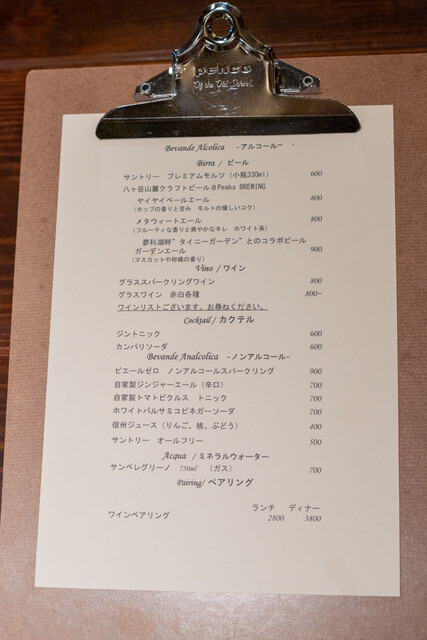 penco
Of the Old School.
Bevande Alcolica -アルコール-
Birra / ビール
サントリー プレミアムモルツ (小瓶330ml) 600
八ヶ岳山麓クラフトビール 8Peaks BREWING
ヤイヤイペールエール 800
(ホップの香りと苦み モルトの優しいコク)
メタウィートエール 800
(フルーティな香りと爽やかなキレ ホワイト系)
蓼科湖畔"タイニーガーデン"とのコラボビール
ガーデンエール 900
(マスカットや柑橘の香り)
Vino / ワイン
グラススパークリングワイン 800
グラスワイン 赤白各種 800~
ワインリストございます。お尋ねください。
Cocktail / カクテル
ジントニック 600
カンパリソーダ 600
Bevande Analcolica -ノンアルコール-
ピエールゼロ ノンアルコールスパークリング 900
自家製ジンジャーエール (辛口) 700
自家製トマトピクルス トニック 700
ホワイトバルサミコビネガーソーダ 700
信州ジュース (りんご、桃、ぶどう) 400
サントリー オールフリー 500
Acqua / ミネラルウォーター
サンペレグリーノ 750ml (ガス) 700
Pairing/ ペアリング
ランチ ディナー
ワインペアリング 2800 3800